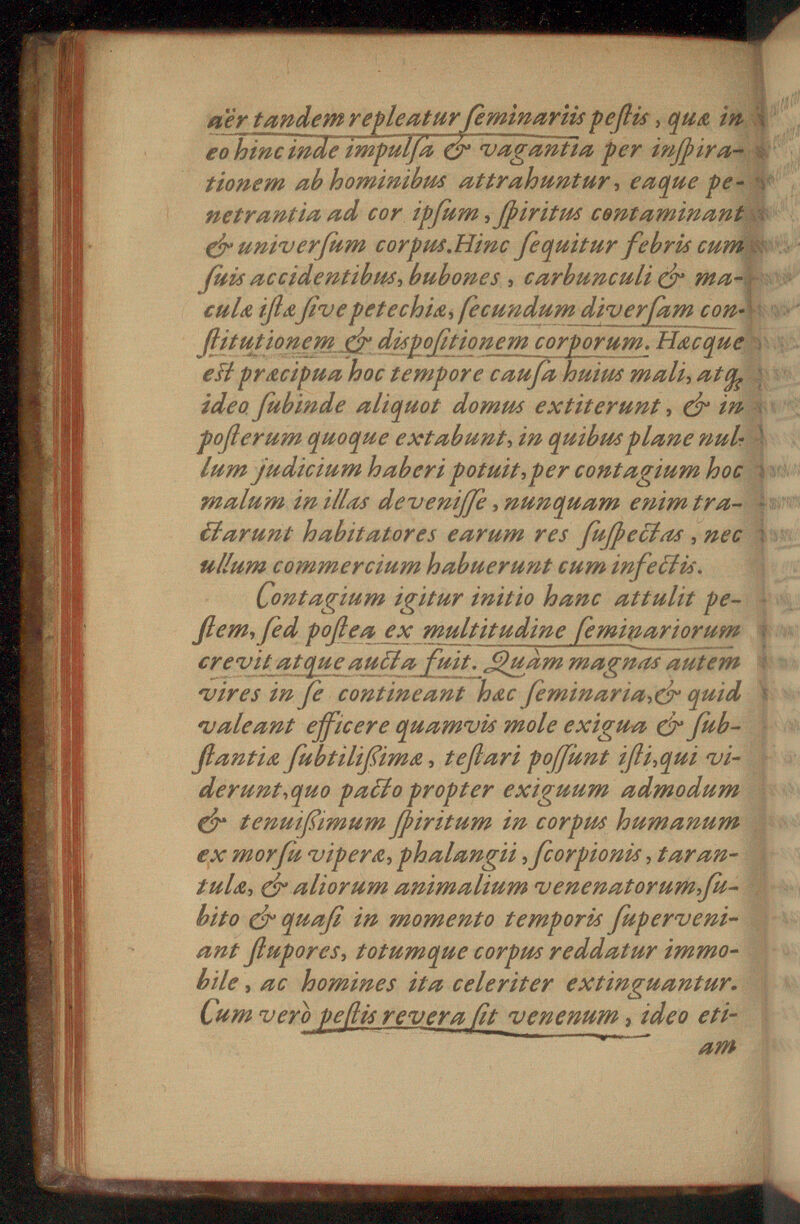 aër tandem repleatur ſeminariis peſtis, quæ in
eo hinc inde impulſa & vagantia per inſpira-
tionem ab hominibus attrahuntur, eaque pe-
netrantia ad cor ipſum, ſpiritus contaminant
& univerſum corpus. Hinc ſequitur febris cum
ſuis accidentibus, bubones, carbunculi & ma-
culæ iſtæ ſive petechiæ, ſecundum diverſam con-
ſtitutionem & dispoſitionem corporum. Hæcque
est præcipua hoc tempore cauſa huius mali, atq́;
ideo ſubinde aliquot domus extiterunt, & in
poſterum quoque extabunt, in quibus plane nul-
lum judicium haberi potuit, per contagium hoc
malum in illas deveniſſe, nunquam enim tra-
ctarunt habitatores earum res ſuſpectas, nec
ullum commercium habuerunt cum infectis.
Contagium igitur initio hanc attulit pe-
ſtem, ſed poſtea ex multitudine ſeminariorum
crevit atque aucta fuit. Quàm magnas autem
vires in ſe contineant hæc ſeminaria, & quid
valeant efficere quamvis mole exigua & ſub-
ſtantia ſubtiliſſima, teſtari poſſunt iſti, qui vi-
derunt, quo pacto propter exiguum admodum
& tenuiſſimum ſpiritum in corpus humanum
ex morſu viperæ, phalangii, ſcorpionis, taran-
tulæ, & aliorum animalium venenatorum, ſu-
bito & quaſi in momento temporis ſuperveni-
ant ſtupores, totumque corpus reddatur immo-
bile, ac homines ita celeriter extinguantur.
Cum verò peſtis revera ſit venenum, ideo eti-
am